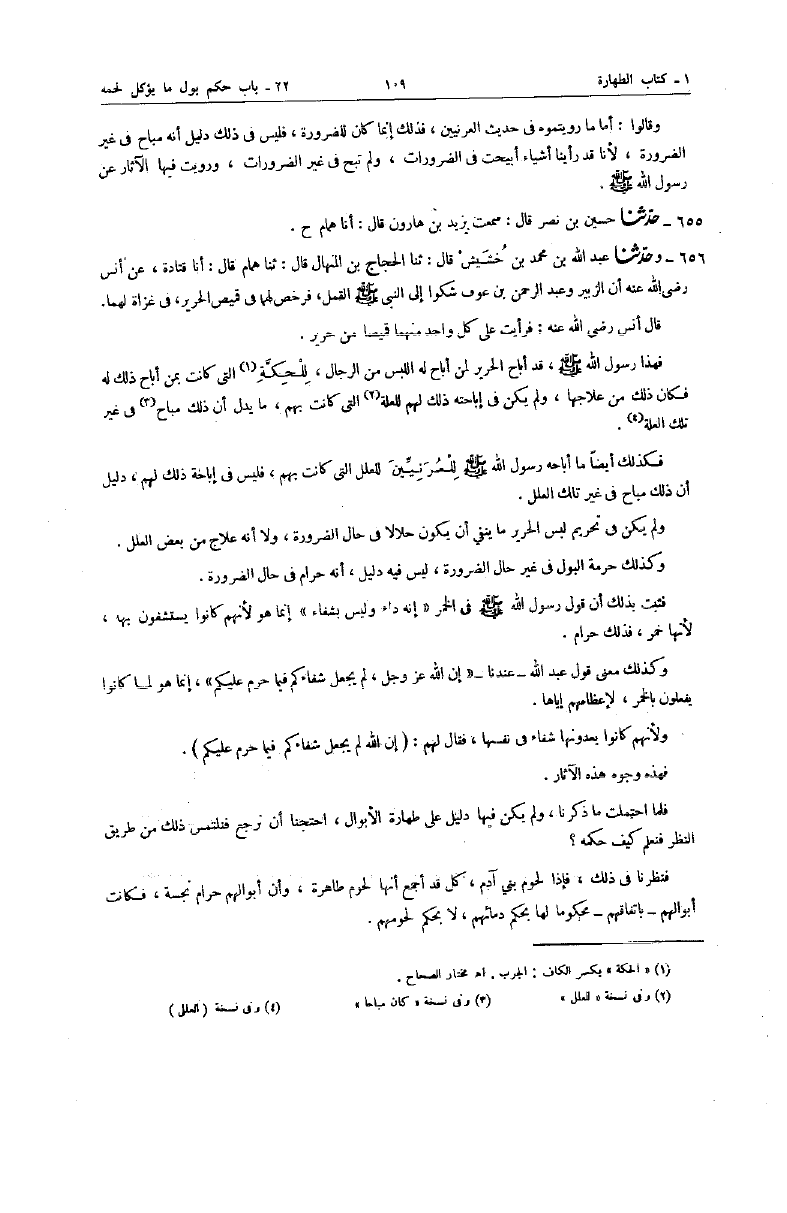 ١ ـ كتاب الطهارة ١٠٩ ٢٢ ـ باب حكم بول ما يؤكل لحمه
وقالوا : أما ما رويتموه فى حديث العرنيين ، فذلك إنما كان للضرورة ، فليس فى ذلك دليل أنه مباح فى غير
الضرورة ، لأنا قد رأينا أشياء أبيحت فى الضرورات ، ولم تبح فى غير الضرورات ، ورويت فيها الآثار عن
رسول الله ﷺ .
٦٥٥ ـ حدّثنا حسين بن نصر قال : سمعت يزيد بن هارون قال : أنا همام ح .
٦٥٦ ـ وحدّثنا عبد الله بن محمد بن خُشَيش قال : ثنا الحجاج بن المنهال قال : ثنا همام قال : أنا قتادة ، عن أنس
رضى الله عنه أن الزبير وعبد الرحمن بن عوف شكوا إلى النبي ﷺ القمل، فرخص لهما فى قميص الحرير، فى غزاة لهما.
قال أنس رضى الله عنه : فرأيت على كل واحد منهما قميصا من حرير .
فهذا رسول الله ﷺ ، قد أباح الحرير لمن أباح له اللبس من الرجال ، لِلْحِكَّةِ (١) التى كانت بمن أباح ذلك له
فكان ذلك من علاجها ، ولم يكن فى إباحته ذلك لهم للعلة (٢) التى كانت بهم ، ما يدل أن ذلك مباح (٣) فى غير
تلك العلة (٤) .
فكذلك أيضاً ما أباحه رسول الله ﷺ لِلْعُرَنِيِّينَ للعلل التى كانت بهم ، فليس فى إباحة ذلك لهم ، دليل
أن ذلك مباح فى غير تلك العلل .
ولم يكن فى تحريم لبس الحرير ما ينفي أن يكون حلالا فى حال الضرورة ، ولا أنه علاج من بعض العلل .
وكذلك حرمة البول فى غير حال الضرورة ، ليس فيه دليل ، أنه حرام فى حال الضرورة .
فثبت بذلك أن قول رسول الله ﷺ فى الخمر « إنه داء وليس بشفاء » إنما هو لأنهم كانوا يستشفون بها ،
لأنها خمر ، فذلك حرام .
وكذلك معنى قول عبد الله ـ عندنا ـ « إن الله عز وجل ، لم يجعل شفاءكم فيما حرم عليكم » ، إنما هو لما كانوا
يفعلون بالخمر ، لإعظامهم إياها .
ولأنهم كانوا يعدونها شفاء فى نفسها ، فقال لهم : ( إن الله لم يجعل شفاءكم فيما حرم عليكم ) .
فهذه وجوه هذه الآثار .
فلما احتملت ما ذكرنا ، ولم يكن فيها دليل على طهارة الأبوال ، احتجنا أن نرجع فنلتمس ذلك من طريق
النظر فنعلم كيف حكمه ؟
فنظرنا فى ذلك ، فإذا لحوم بني آدم ، كل قد أجمع أنها لحوم طاهرة ، وأن أبوالهم حرام نجسة ، فكانت
أبوالهم ـ باتفاقهم ـ محكوما لها بحكم دمائهم ، لا بحكم لحومهم .
(١) « الحكة » بكسر الكاف : الجرب . اه مختار الصحاح .
(٢) وفى نسخة « للعلل » (٣) وفى نسخة « كان مباحا » (٤) وفى نسخة ( العلل )